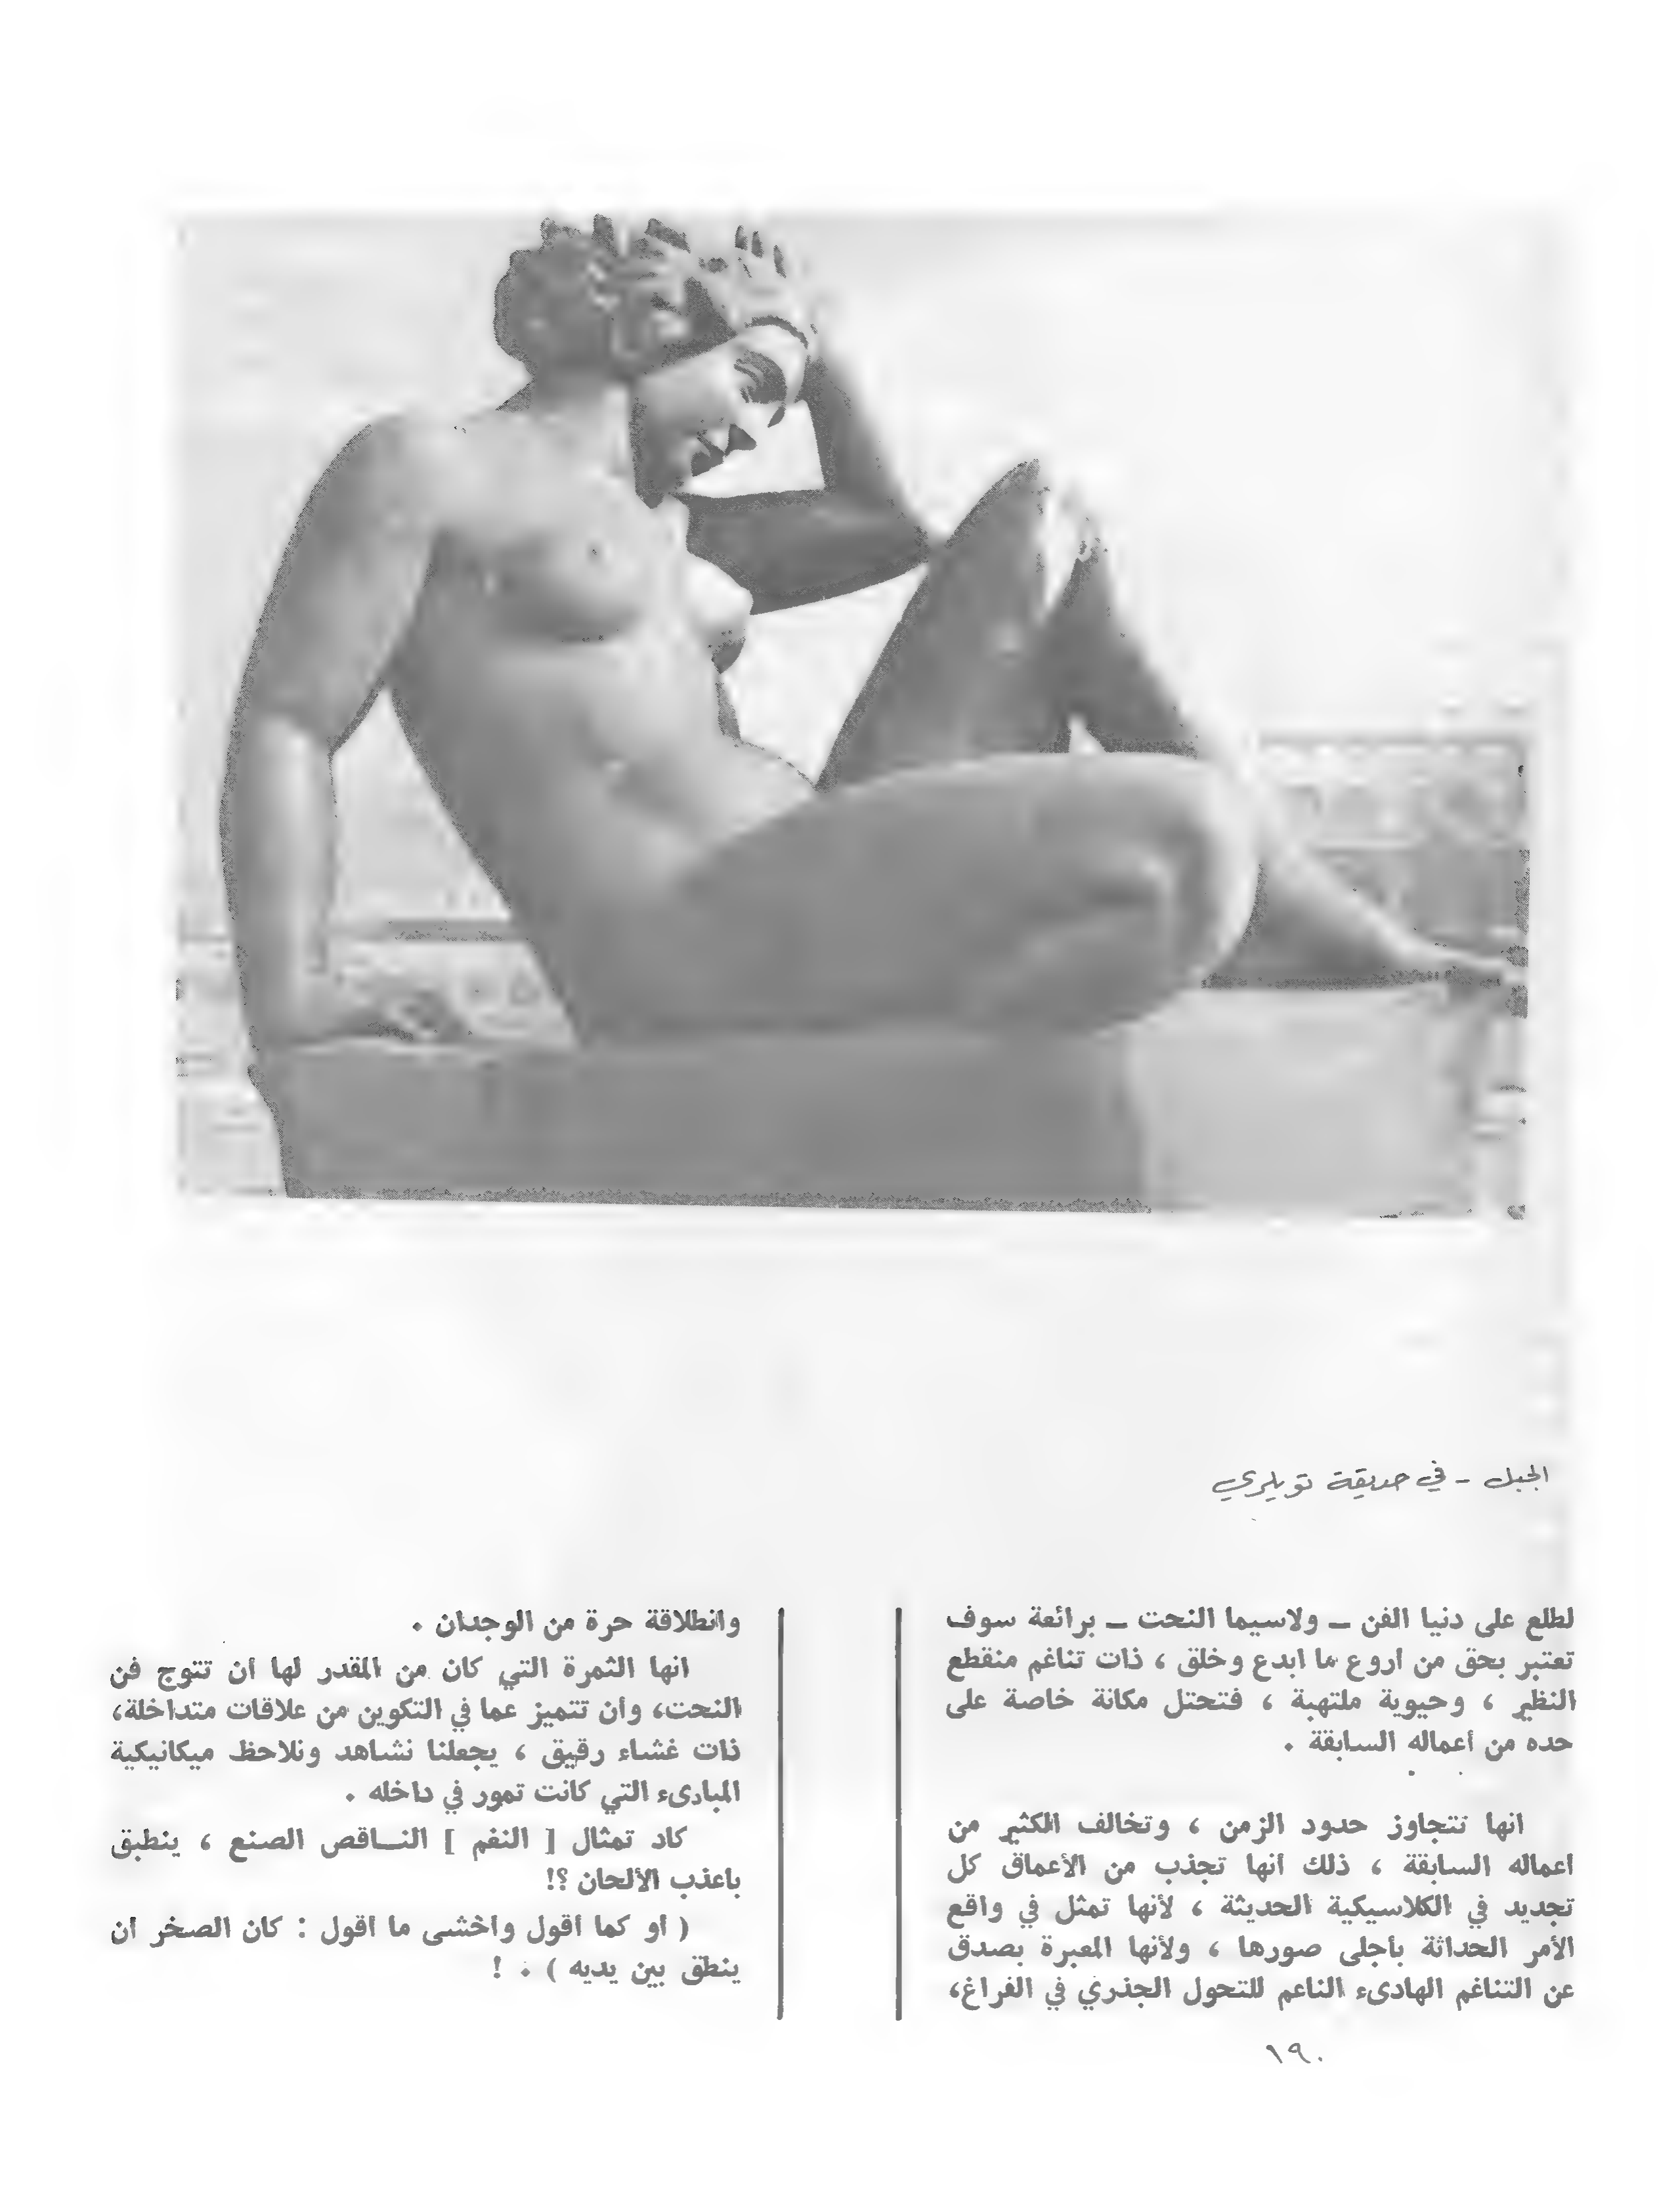 الجبل - في حديقة تويلري
لطلع على دنيا الفن ــ ولاسيما النحت ــ برائعة سوف
تعتبر بحق من اروع ما ابدع وخلق ، ذات تناغم منقطع
النظير ، وحيوية ملتهبة ، فتحتل مكانة خاصة على
حده من أعماله السابقة .
انها تتجاوز حدود الزمن ، وتخالف الكثير من
اعماله السابقة ، ذلك انها تجذب من الأعماق كل
تجديد في الكلاسيكية الحديثة ، لأنها تمثل في واقع
الأمر الحداثة بأجلى صورها ، ولأنها المعبرة بصدق
عن التناغم الهادىء الناعم للتحول الجذري في الفراغ،
وانطلاقة حرة من الوجدان .
انها الثمرة التي كان من المقدر لها ان تتوج فن
النحت، وأن تتميز عما في التكوين من علاقات متداخلة،
ذات غشاء رقيق ، يجعلنا نشاهد ونلاحظ ميكانيكية
المبادىء التي كانت تمور في داخله .
كاد تمثال [ النغم ] النـــاقص الصنع ، ينطبق
باعذب الألحان ؟!
( او كما اقول واخشى ما اقول : كان الصخر ان
ينطق بين يديه ) . !
١٩٠